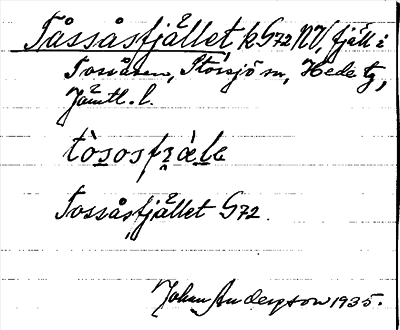 Tåssåsfjället, k G72 NV, fjäll i
Tossåsen, Storsjö sn, Hede tg,
Jämtl. l.
tòsosfjä̀lə
Tossåsfjället G72.
Johan Anderzson 1935.